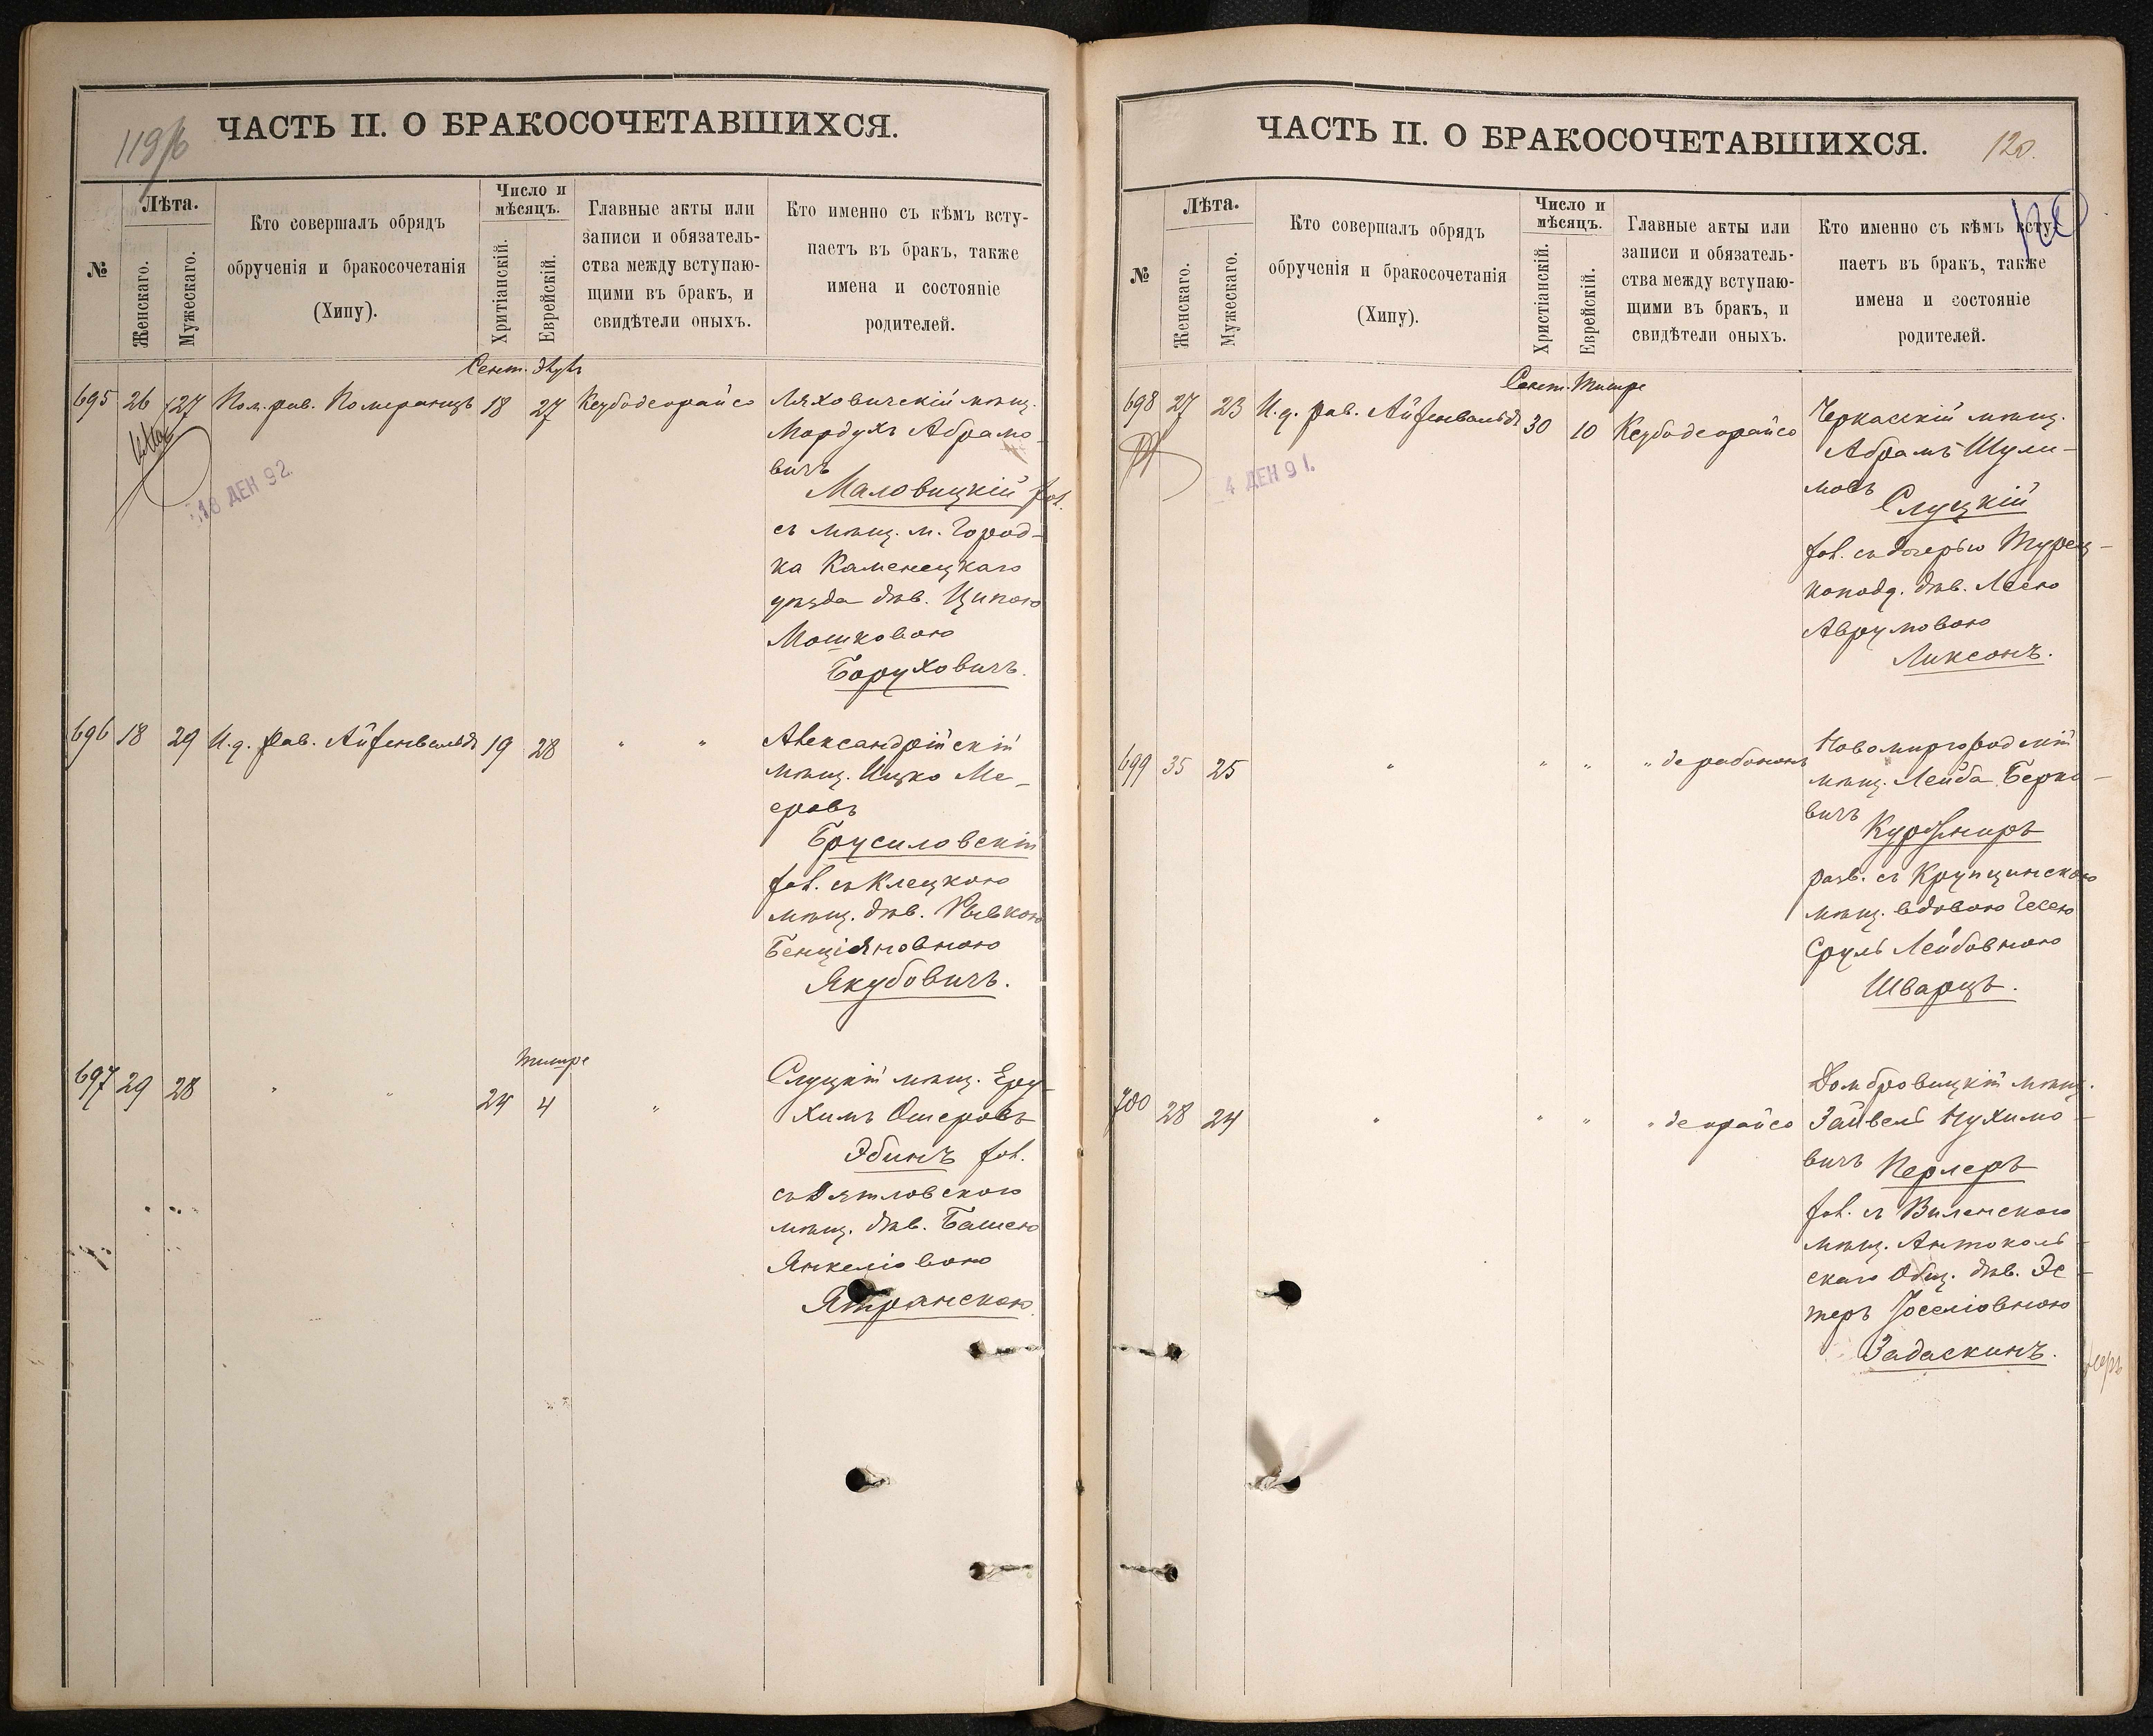 119/б
ЧАСТЬ II. О БРАКОСОЧЕТАВШИХСЯ.
№
Лѣта.
Женскаго.
Мужескаго.
Кто совершалъ обрядъ
обрученія и бракосочетанія
(Хипу).
Число и
мѣсяцъ.
Хритіанскій.
Еврейскій.
Главные акты или
записи и обязатель-
ства между вступаю-
щими въ бракъ, и
свидѣтели оныхъ.
Кто именно съ кѣмъ всту-
паетъ въ бракъ, также
имена и состояніе
родителей.
Сент. Элулъ
695 26 27 Пом. рав. Померанцъ 18 27 Кезбодеорайсо
Ляховичскій мѣщ.
Мордухъ Абрамо-
вичъ
Маловицкій хол.
съ мѣщ. м. Город-
ка Каменецкаго
уѣзда дѣв. Ципою
Мошковою
Боруховичъ.
18 ДЕН 92.
696 18 29 И. д. рав. Айзенвальдъ 19 28 " "
Александрійскій
мѣщ. Ицко Ме-
еровъ
Брусиловскій
хол. съ Клецкою
мѣщ. дѣв. Рывкою
Бенціяновною
Якубовичъ.
Тишре
697 29 28 " " 24 4 "
Слуцкій мѣщ. Еру-
химъ Ошеровъ
Эбинъ хол.
съ Дятловскою
мѣщ. дѣв. Башею
Янкеліовою
Ятранскою.
ЧАСТЬ II. О БРАКОСОЧЕТАВШИХСЯ.
120.
120
№
Лѣта.
Женскаго.
Мужескаго.
Кто совершалъ обрядъ
обрученія и бракосочетанія
(Хипу).
Число и
мѣсяцъ.
Христіанскій.
Еврейскій.
Главные акты или
записи и обязатель-
ства между вступаю-
щими въ бракъ, и
свидѣтели оныхъ.
Кто именно съ кѣмъ всту-
паетъ въ бракъ, также
имена и состояніе
родителей.
Сент. Тишре
698 27 23 И. д. рав. Айзенвальдъ 30 10 Кезбодеорайсо
Черкасскій мѣщ.
Абрамъ Шули-
мовъ
Слуцкій
хол. съ дочерью Турец-
коподд. дѣв. Леею
Аврумовою
Ликсонъ.
4 ДЕН 91.
699 35 25 " " " " дерабононъ
Новомиргородскій
мѣщ. Лейба Берко-
вичъ
Куршниръ
разв. съ Крупчинскою
мѣщ. вдовою Гесею
Сруль Лейбовною
Шварцъ.
700 28 24 " " " " деорайсо
Домбровицкій мѣщ.
Зайвель Нухимо-
вичъ Перлеръ
хол. съ Виленскою
мѣщ. Антоколь-
скаго Общ. дѣв. Эс-
теръ Іоселіовною
Задаскинъ.